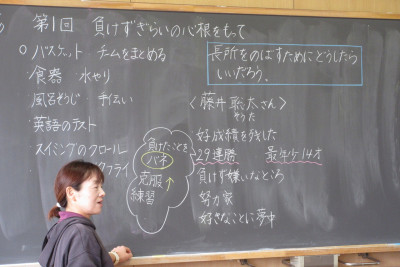 第1回 負けずぎらいの心根をもって
○バスケット チームをまとめる
食器 水やり
風呂そうじ 手伝い
英語のテスト
スイミングのクロール
バタフライ
長所をのばすためにどうしたら
いいだろう。
〈藤井聡太さん〉
そうた
好成績を残した
29連勝 最年少14才
負けず嫌いなところ
努力家
好きなことに夢中
負けたことを
バネ
克服↑
練習